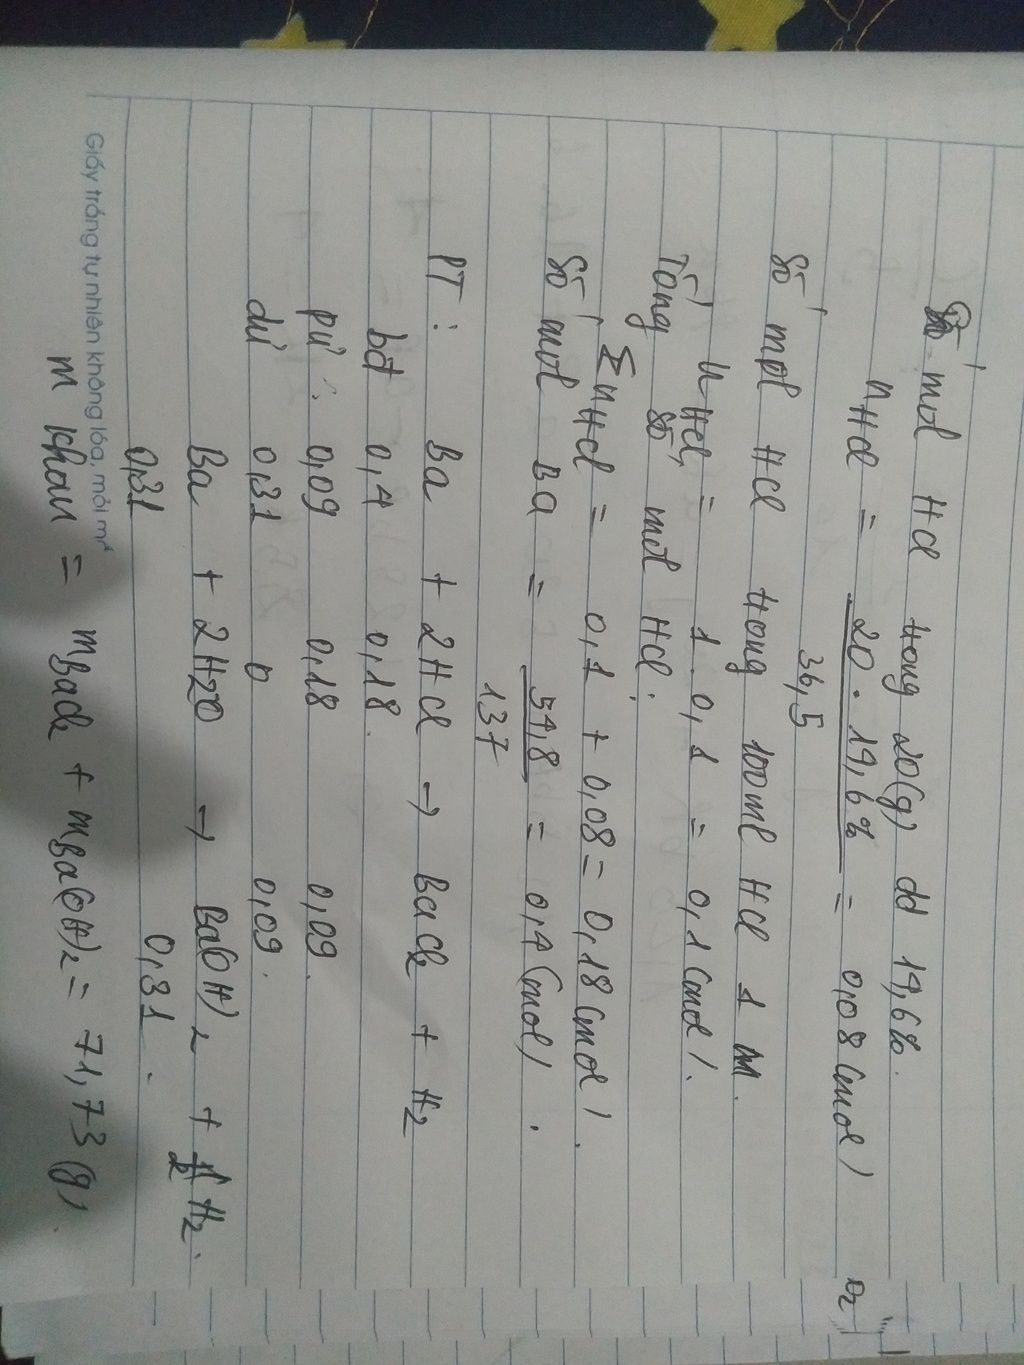 Số mol HCl trong 20(g) dd 14,6%.
nHCl = 20 . 14,6% / 36,5 = 0,08 (mol)
Số mol HCl trong 100ml HCl 1 M.
nHCl = 1 . 0,1 = 0,1 (mol).
Tổng số mol HCl:
ΣnHCl = 0,1 + 0,08 = 0,18 (mol).
Số mol Ba = 54,8 / 137 = 0,4 (mol).
PT: Ba + 2HCl → BaCl2 + H2
bđ 0,4 0,18.
pứ: 0,09 0,18 0,09.
dư 0,31 0 0,09.
Ba + 2H2O → Ba(OH)2 + H2.
0,31 0,31.
Giấy trắng tự nhiên không lóa, mỏi mắt
m khan = mBaCl2 + mBa(OH)2 = 71,73 (g).